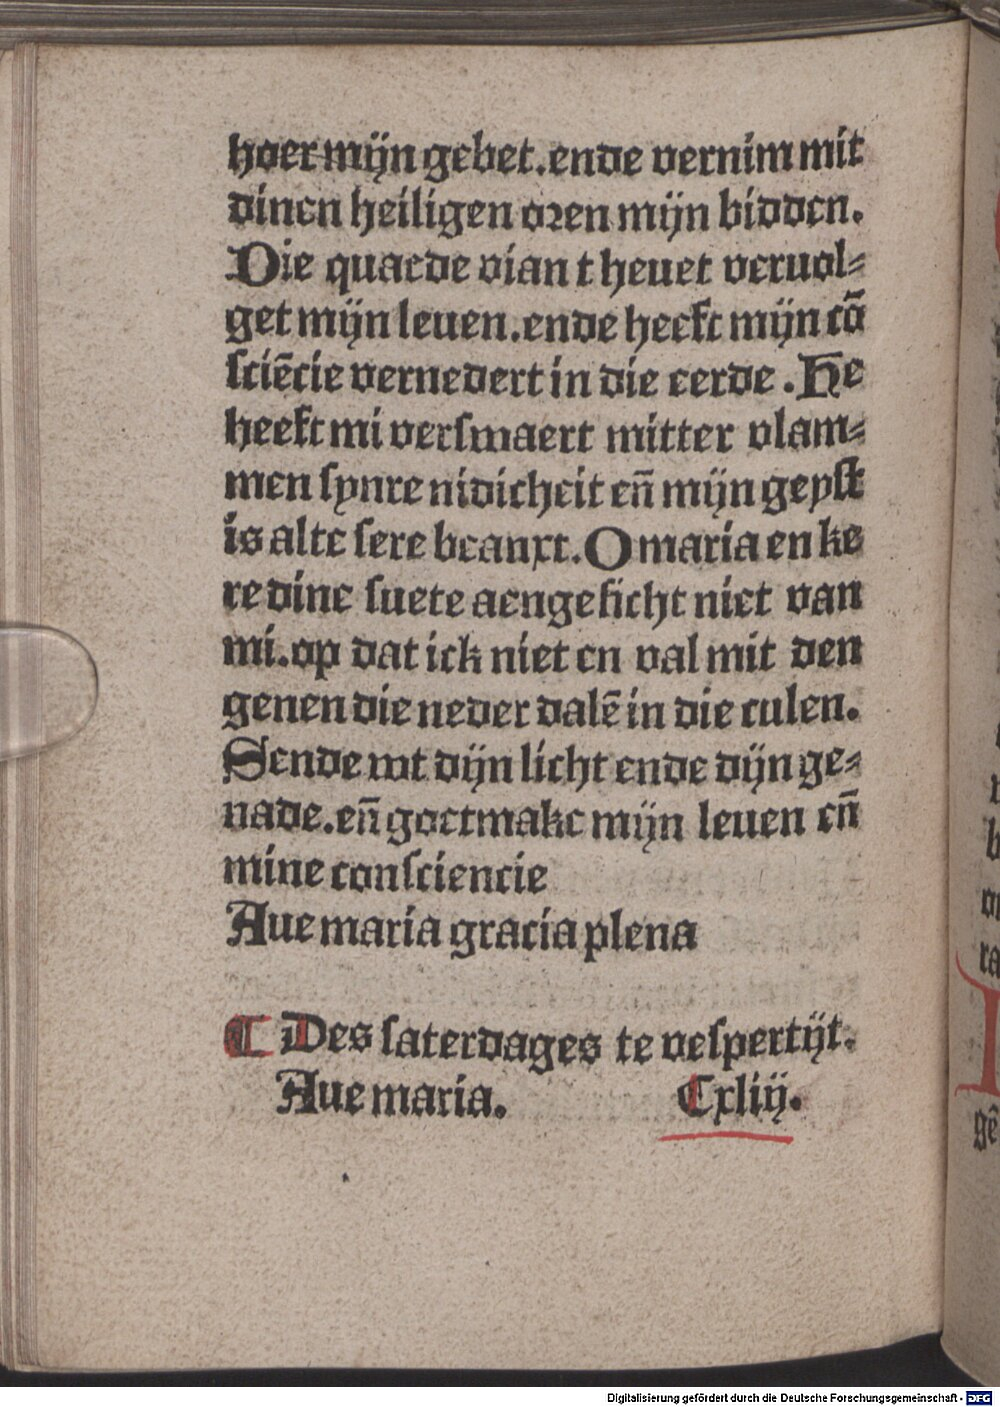 hoer mijn gebet. ende vernim mit
dinen heiligen oren mijn bidden.
Die quaede viant heuet veruol⸗
get mijn leuen. ende heeft mijn cõ
sciẽcie vernedert in die eerde. He
heeft mi versmaert mitter vlam⸗
men synre nidicheit eñ mijn geyst
is alte sere beanxt. O maria en ke
re dine suete aengesicht niet van
mi. op dat ick niet en val mit den
genen die neder dalẽ in die culen.
Sende wt dijn licht ende dijn ge⸗
nade. eñ goet make mijn leuen eñ
mine consciencie
Aue maria gracia plena
¶ Des saterdages te vespertijt.
Aue maria. Cxliij.
Digitalisierung gefördert durch die Deutsche Forschungsgemeinschaft - DFG